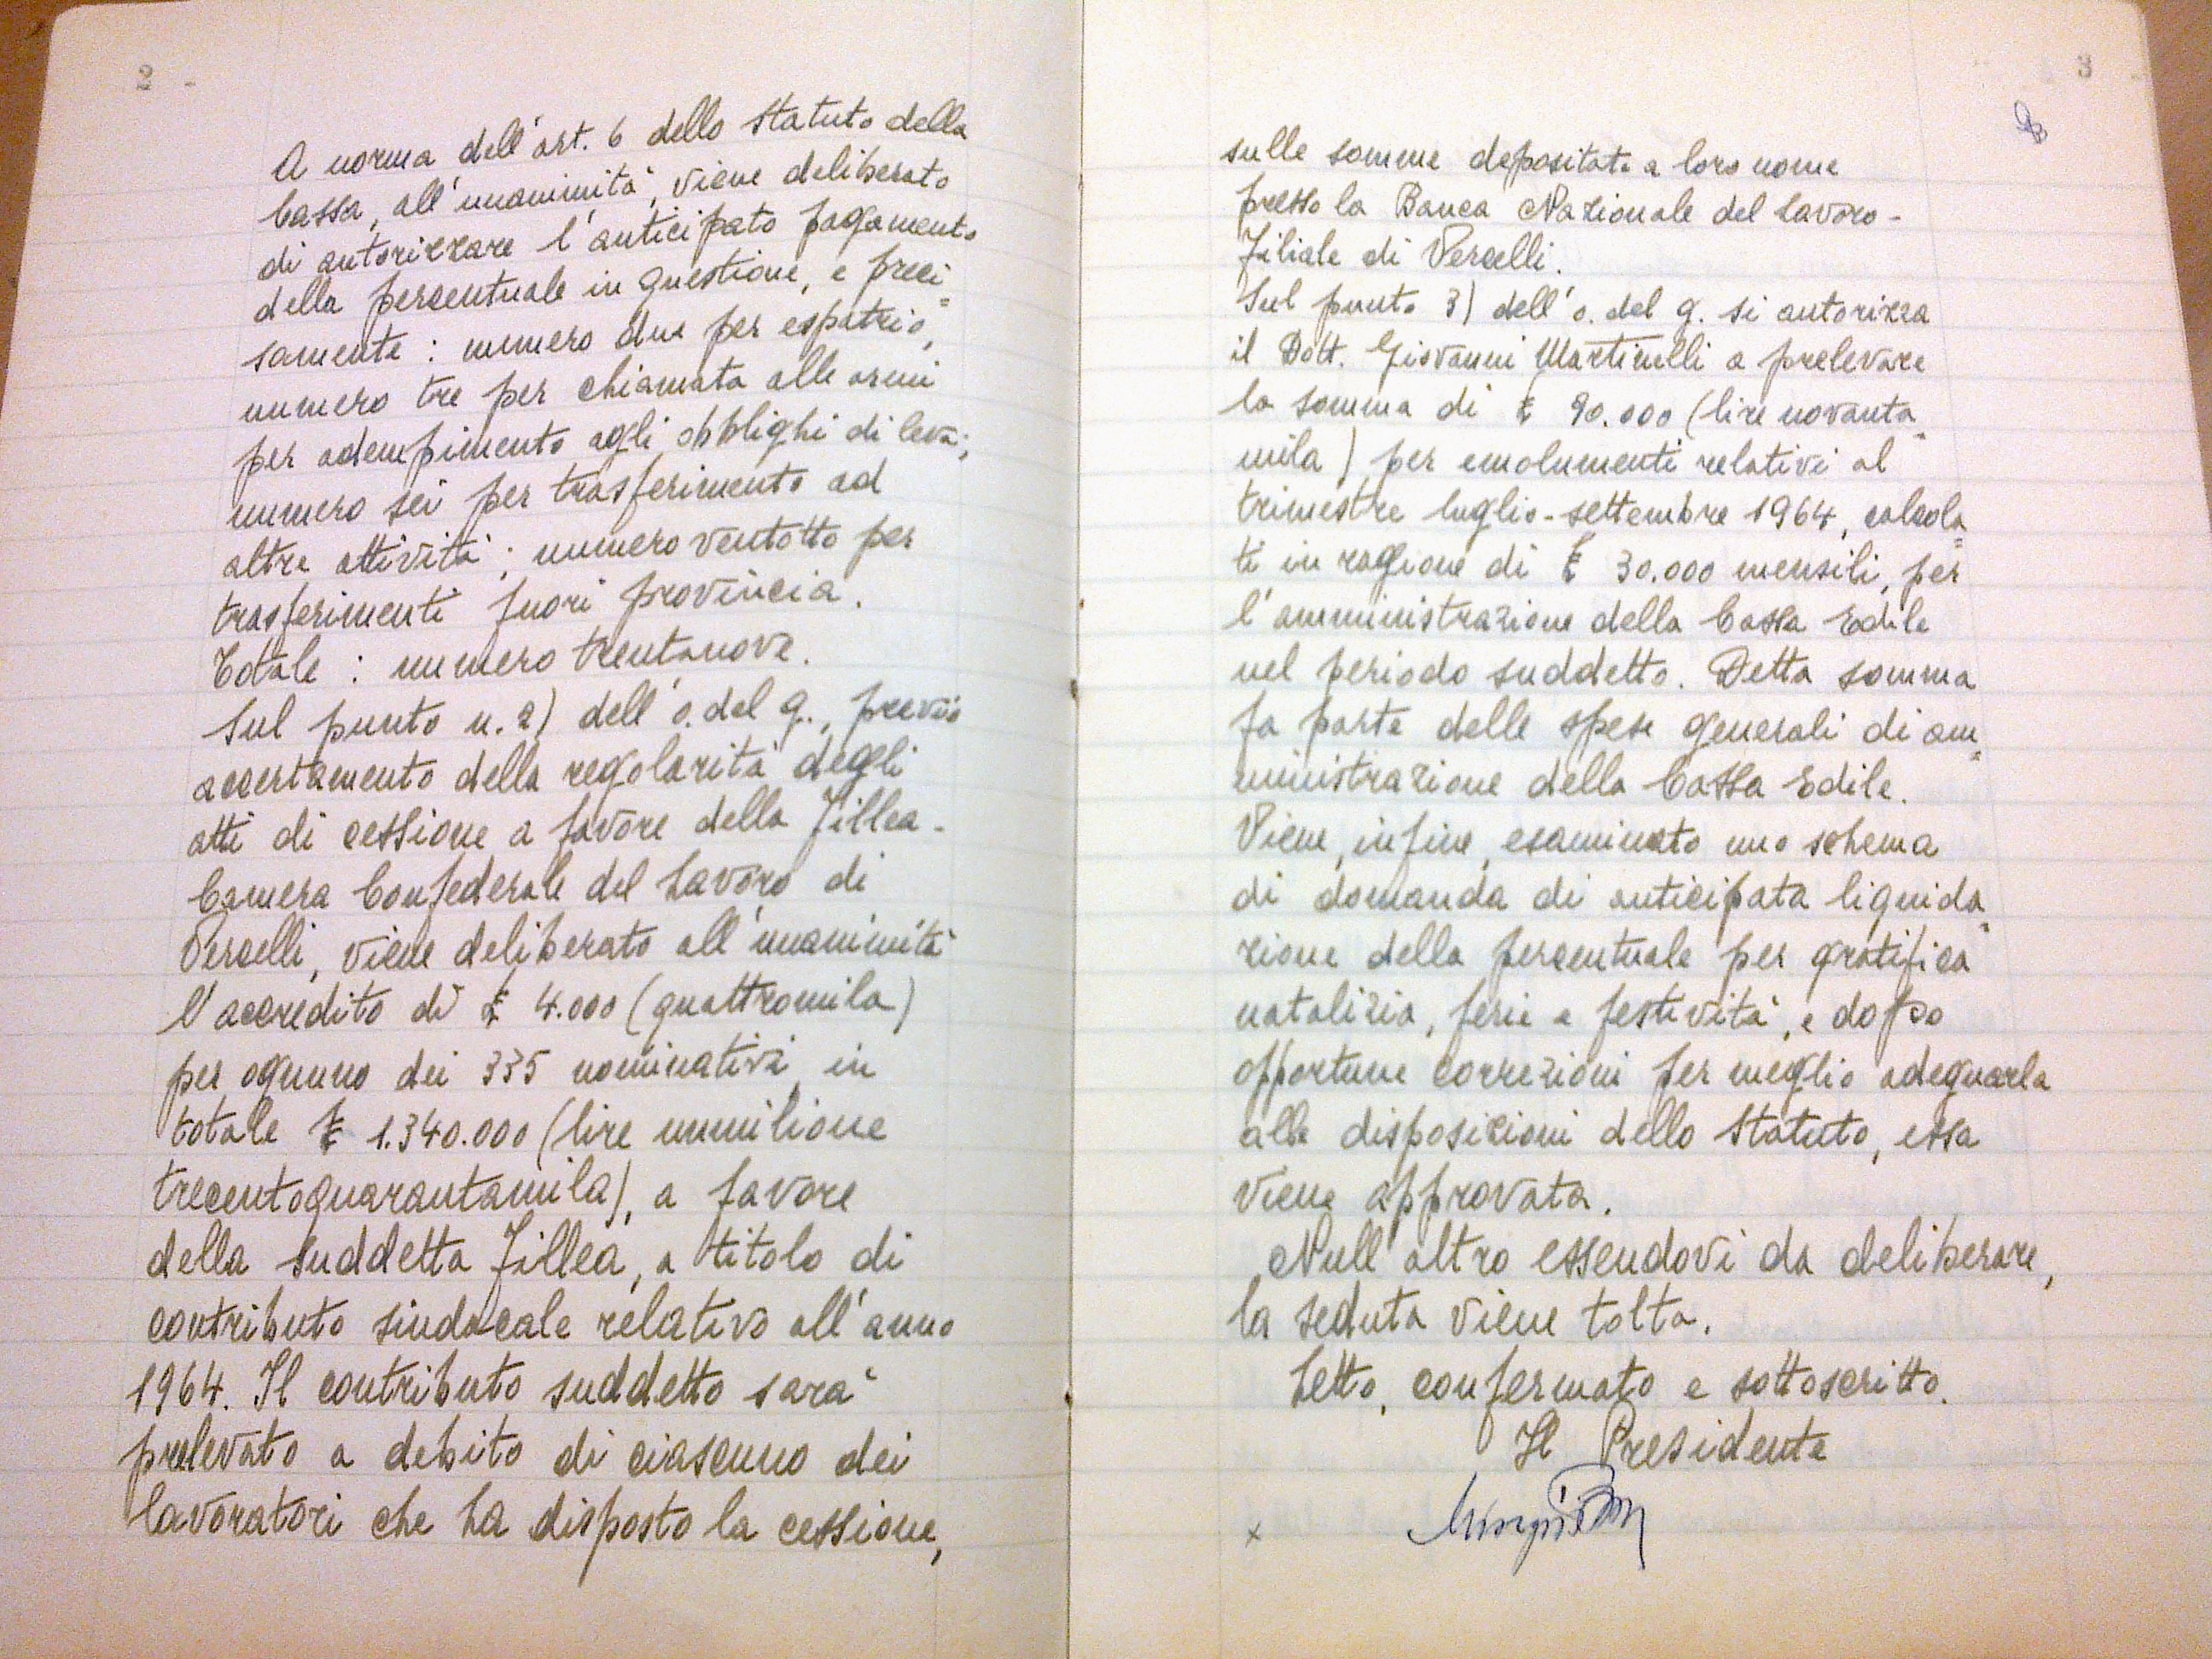 2
A norma dell'art. 6 dello Statuto della
Cassa, all'unanimità, viene deliberato
di autorizzare l'anticipato pagamento
della percentuale in questione, e preci=
samente : numero due per espatrio,
numero tre per chiamata alle armi
per adempimento agli obblighi di leva;
numero sei per trasferimento ad
altre attività ; numero ventotto per
trasferimenti fuori provincia.
Totale : numero trentanove.
Sul punto n. 2) dell'o. del g., previo
accertamento della regolarità degli
atti di cessione a favore della Fillea -
Camera Confederale del Lavoro di
Vercelli, viene deliberato all'unanimità
l'accredito di £ 4.000 (quattromila)
per ognuno dei 335 nominativi, in
totale £ 1.340.000 (lire unmilione
trecentoquarantamila), a favore
della suddetta Fillea, a titolo di
contributo sindacale relativo all'anno
1964. Il contributo suddetto sarà
prelevato a debito di ciascuno dei
lavoratori che ha disposto la cessione,
3
sulle somme depositate a loro nome
presso la Banca Nazionale del Lavoro -
Filiale di Vercelli.
Sul punto 3) dell'o. del g. si autorizza
il Dott. Giovanni Martinelli a prelevare
la somma di £ 90.000 (lire novanta=
mila) per emolumenti relativi al
trimestre luglio-settembre 1964, calcola=
ti in ragione di £ 30.000 mensili, per
l'amministrazione della Cassa Edile
nel periodo suddetto. Detta somma
fa parte delle spese generali di am=
ministrazione della Cassa Edile.
Viene, infine, esaminato uno schema
di domanda di anticipata liquida=
zione della percentuale per gratifica
natalizia, ferie e festività, e dopo
opportune correzioni per meglio adeguarla
alle disposizioni dello Statuto, essa
viene approvata.
Null'altro essendovi da deliberare,
la seduta viene tolta.
Letto, confermato e sottoscritto.
Il Presidente
x